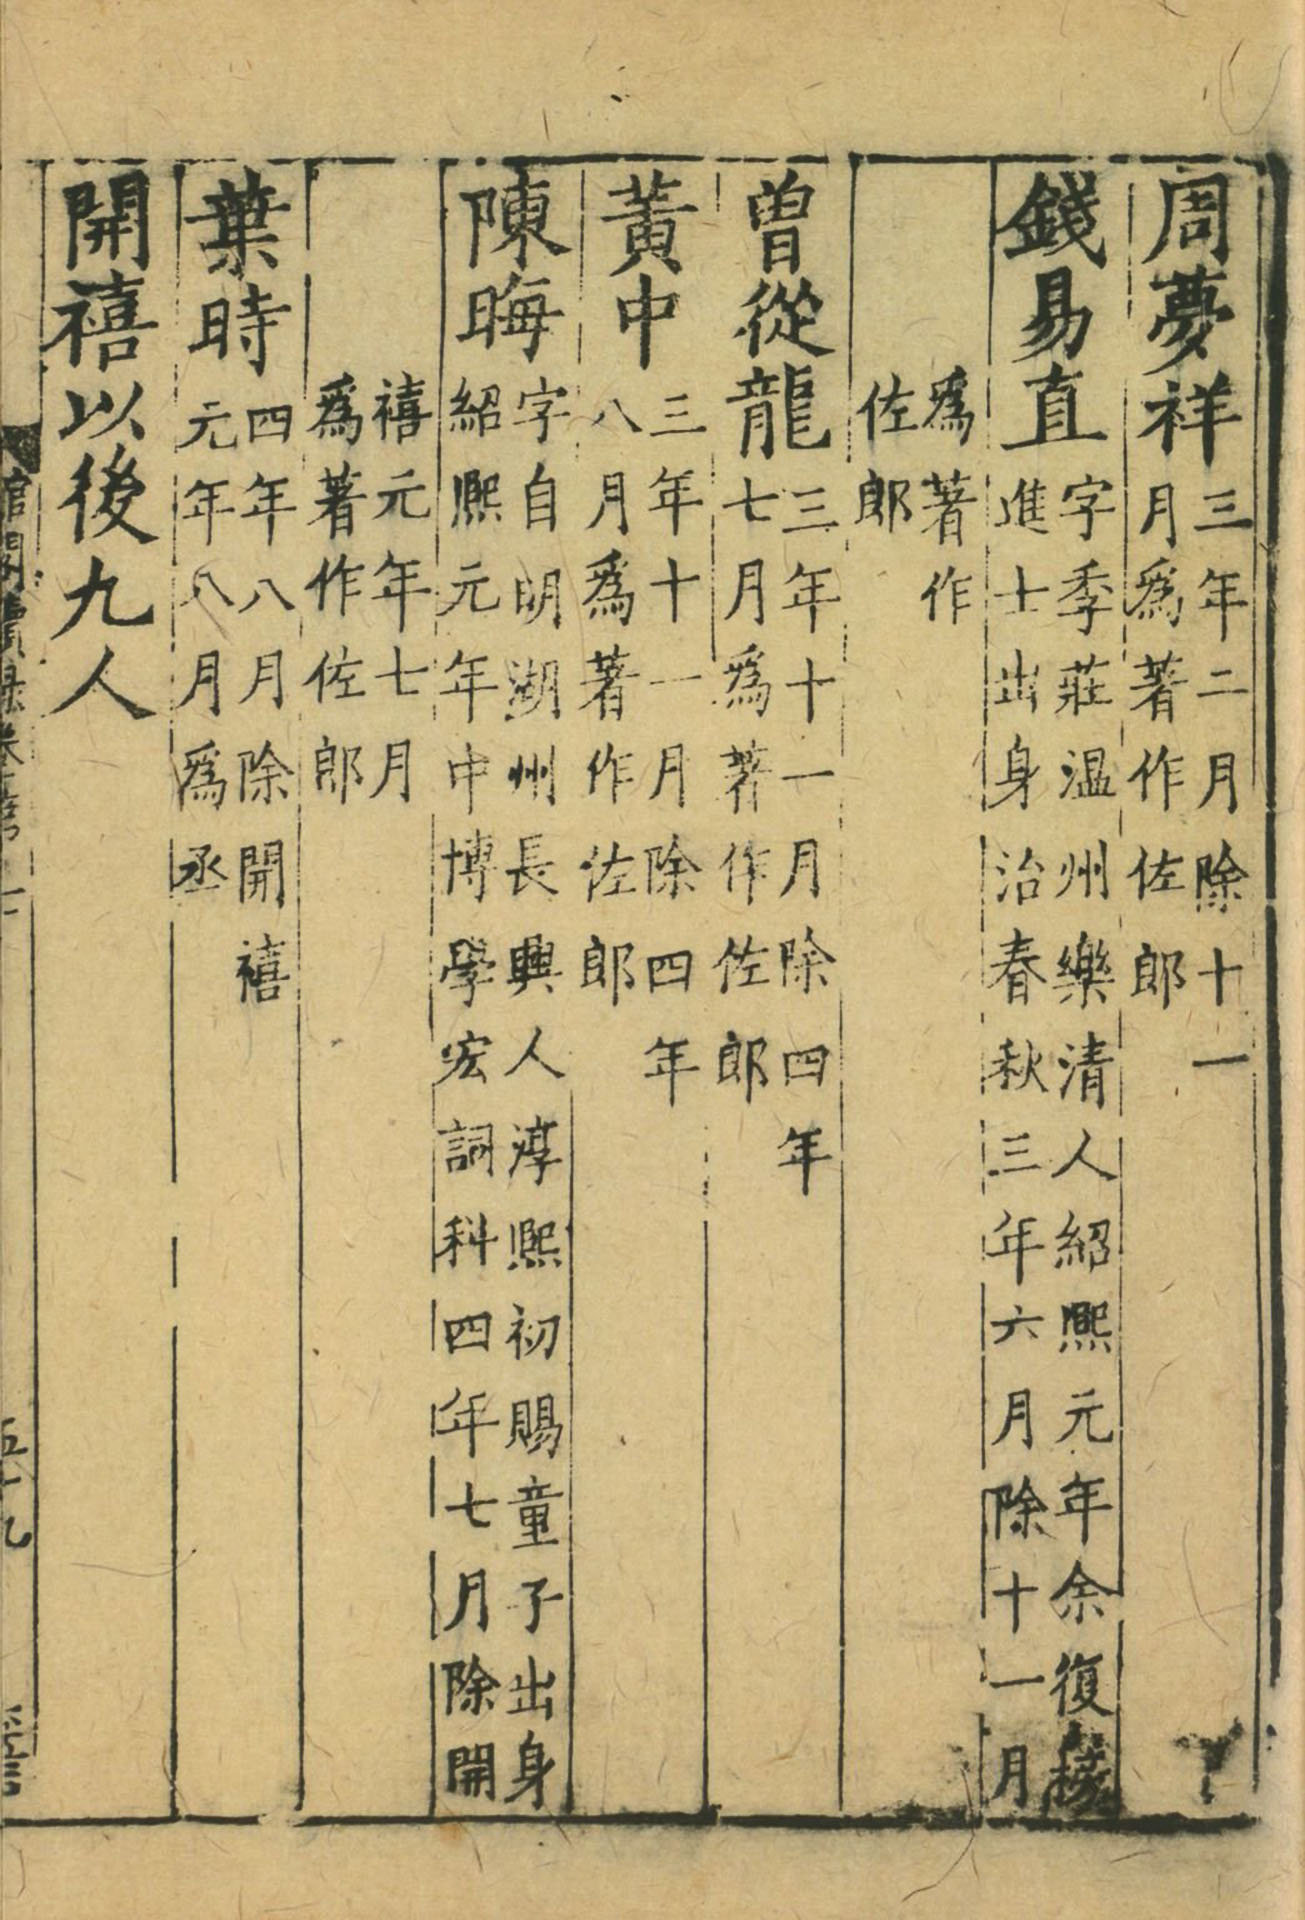 周夢祥三年二月除十一
月爲著作佐郎
錢易直字季莊温州樂清人紹熙元年余復榜
進士出身治春秋三年六月除十一月
爲著作
佐郎
曾從龍三年十一月除四年
七月爲著作佐郎
黃中三年十一月除四年
八月爲著作佐郎
陳晦字自明湖州長興人淳熙初賜童子出身
紹熙元年中博學宏詞科四年七月除開
禧元年七月
爲著作佐郎
葉時四年八月除開禧
元年八月爲丞
開禧以後九人
館閣續録卷第